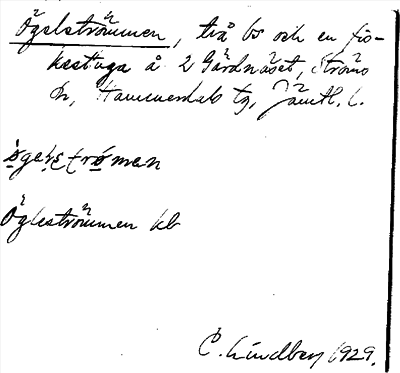 Ögelströmmen, två bs och en fis-
kestuga å 2 Gärdnäset, Ströms
sn, Hammerdals tg, Jämtl. l.
Ögleströmmen kb
C. Lindberg 1929.